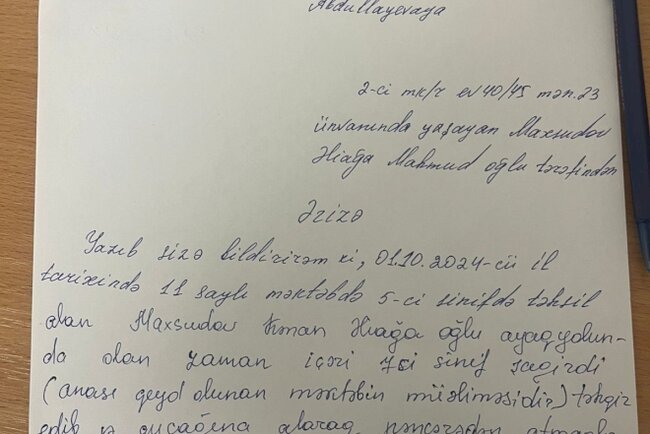 Abdullayevaya
2-ci mk/r ev 40/45 mən.23
ünvanında yaşayan Maxsudov
Əliağa Mahmud oğlu tərəfindən
Ərizə
Yazıb sizə bildirirəm ki, 01.10.2024-cü il
tarixində 11 saylı məktəbdə 5-ci sinifdə təhsil
alan Maxsudov Əliağa oğlu ayaqyolun-
da olan zaman içəri 7ci sinif şagirdi
(anası qeyd olunan məktəbin müəliməsidir) təhqir
edib və qucağına alaraq pəncərədən atmaqla